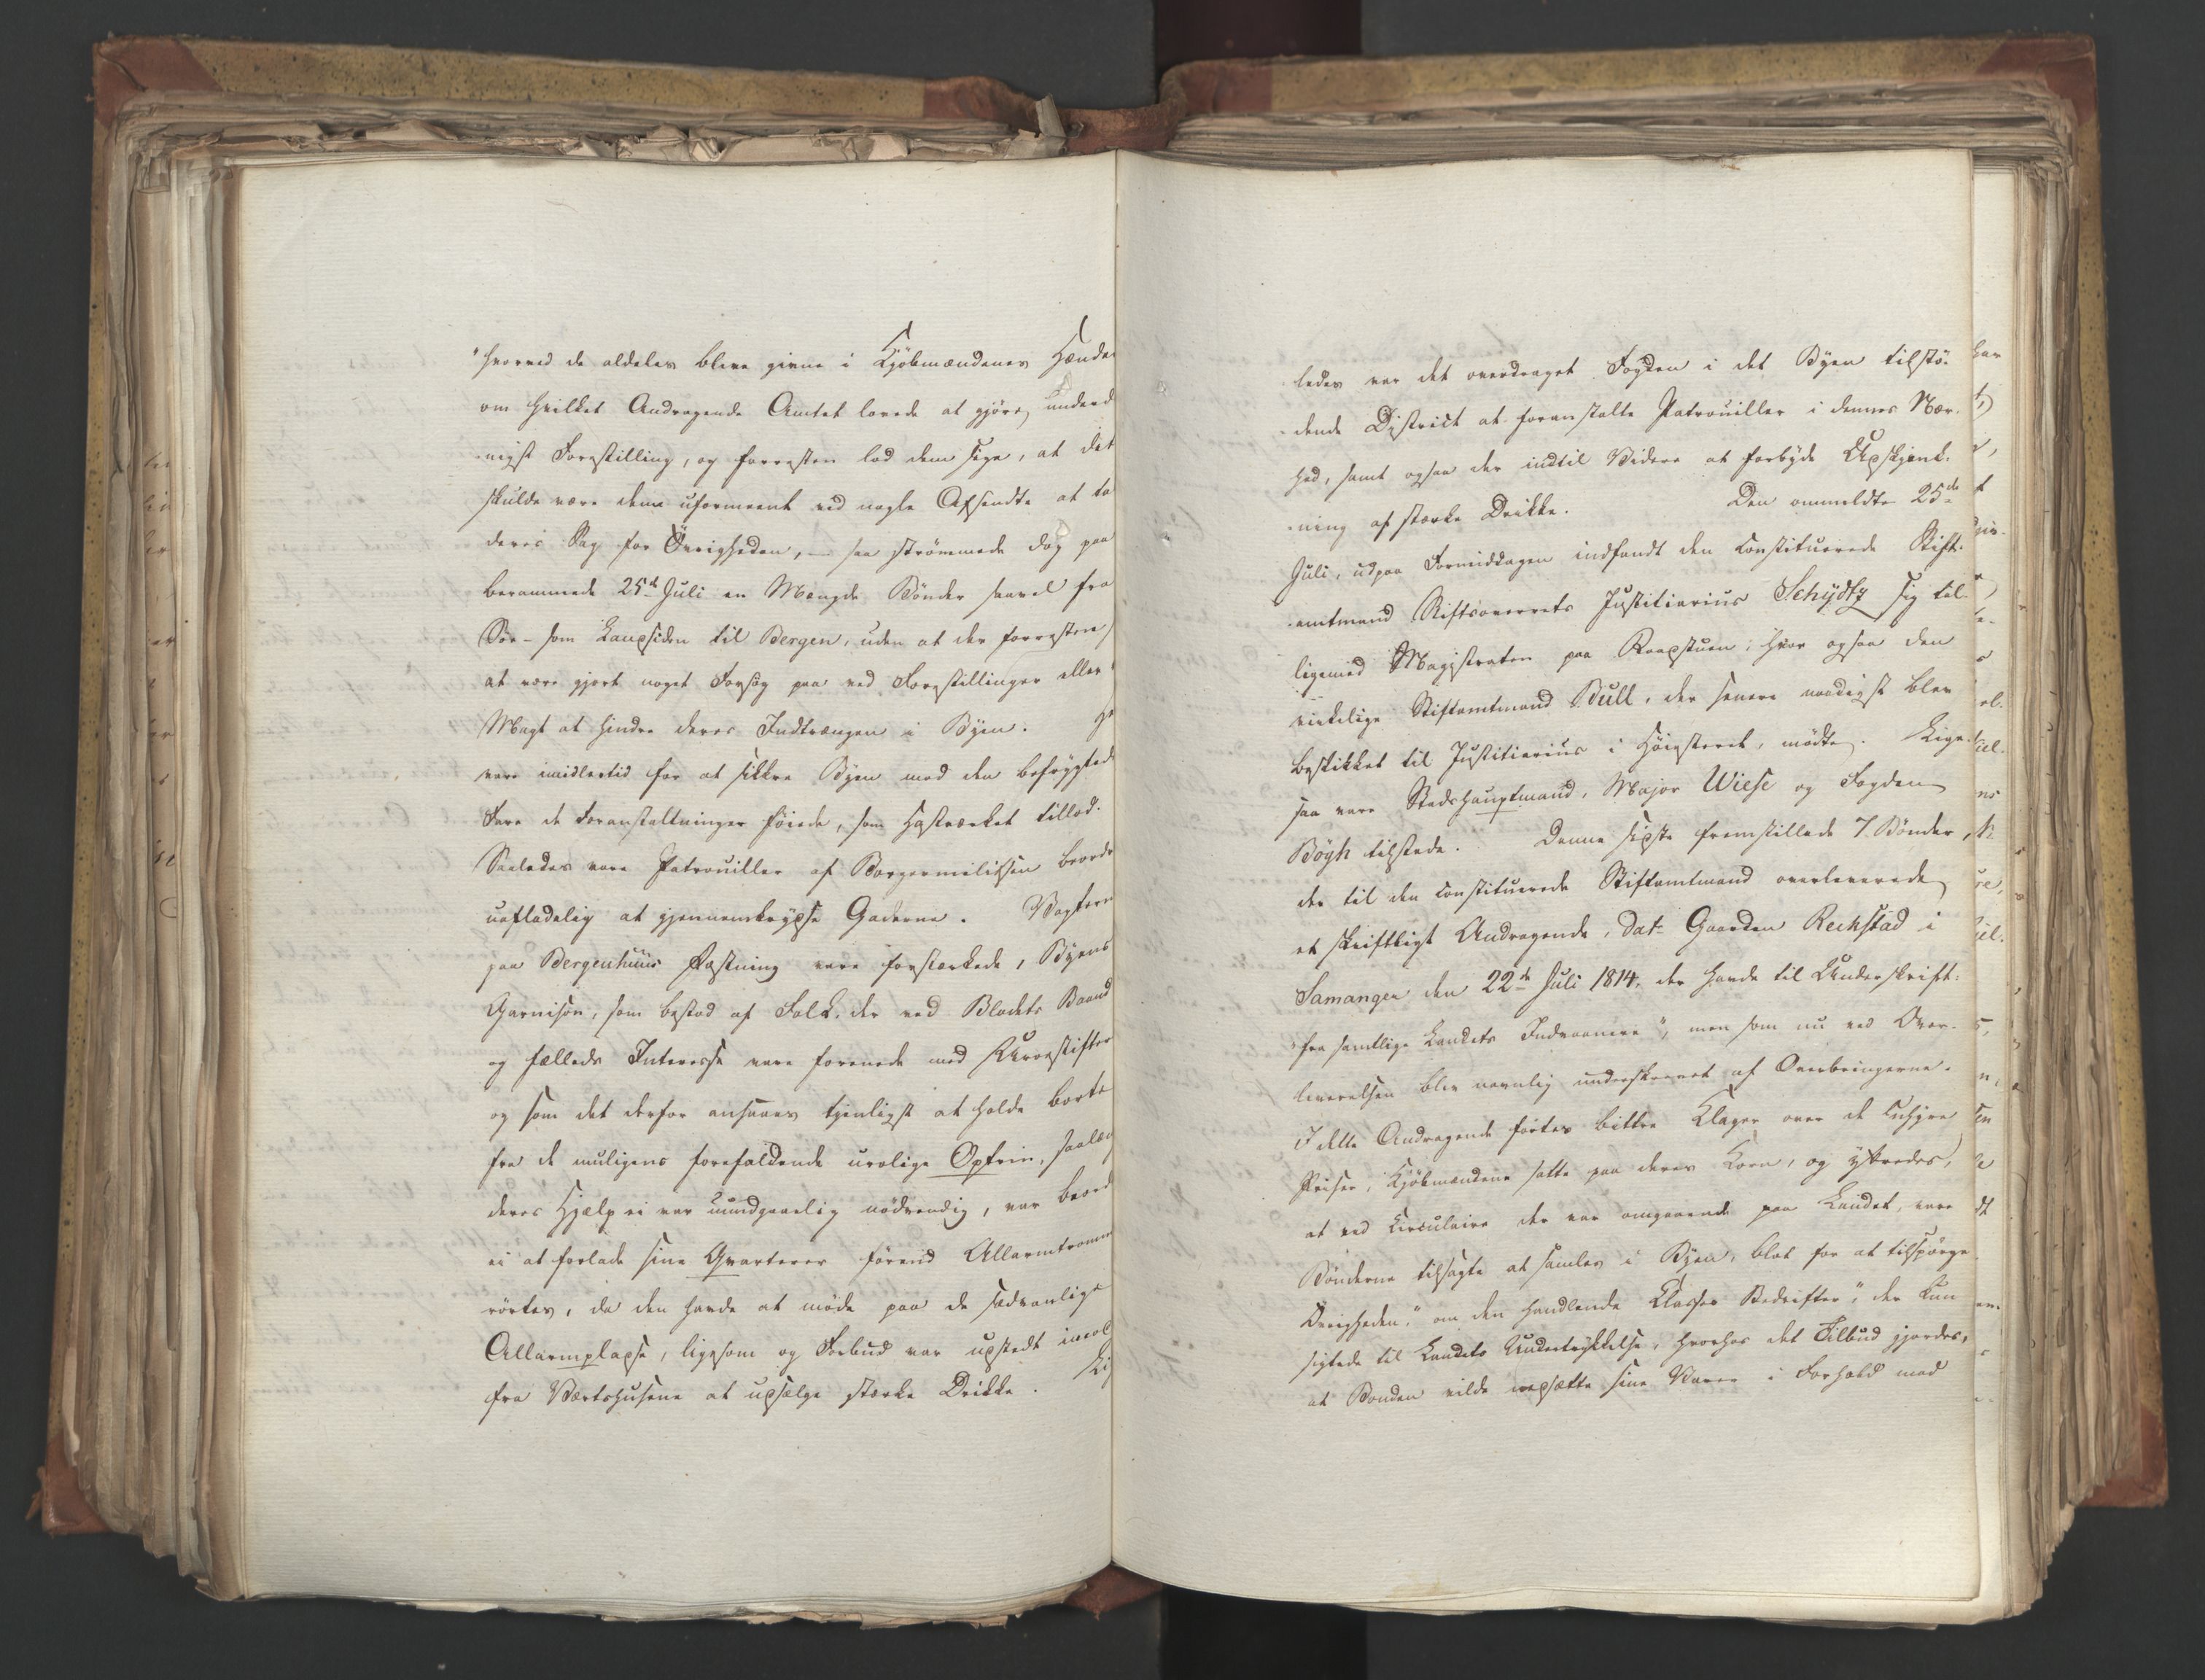 "hvorved de aldeles bleve givne i Kjöbmændenes Hænder
om hvilket Andragende Amtet lovede at gjöre underd
nigst Forestilling, og forresten lod dem sige, at det
skulde være dem uformeent ved nogle Afsendte at ta
deres Sag for Övrigheden, – saa strömmede dog paa
berammede 25de Juli en Mængde Bönder saavel fra
Sör- som Langsiden til Bergen, uden at der forresten
at være gjort noget Forsög paa ved Forestillinger eller
Magt at hindre deres Indtrængen i Byen.
vare imidlertid for at sikkre Byen mod den befrygtede
Fare de Foranstaltninger föiede, som Hastværket tillod.
Saaledes vare Patrouiller af Borgermilitsen beordr
uafladelig at gjennemkrydse Gaderne. Vagterne
paa Bergenhuus Fæstning vare forstærkede, Byens
Garnison, som bestod af Folk, der ved Blodets Baand
og fælleds Interesse vare forenede med Urostifter
og som det derfor ansaaes tjenligst at holde borte
fra de muligens forefaldende urolige Optrin, saalæn
deres Hjælp ei var uundgaaelig nödvendig, var beord
ei at forlade sine Qvarterer förend Allarmtromm
rörtes, da den havde at möde paa de sædvanlige
Allarmpladse, ligesom og Forbud var udstedt imod
fra Værtshusene at udsælge stærke Drikke. Li
ledes var det overdraget Fogden i det Byen tilstö-
dende District at foranstalte Patrouiller i dennes Nær-
hed, samt ogsaa der indtil Videre at forbyde Udskjænk-
ning af stærke Drikke. Den ommeldte 25de
Juli, udpaa Formiddagen indfandt den constituerede Stift-
amtmand Stiftsoverrets Justitiarius Schydtz sig til-
ligemed Magistraten paa Raadstuen; hvor ogsaa den
virkelige Stiftamtmand Bull, der senere naadigst blev
beskikket til Justitiarius i Höiesteret, mödte. Lige-
saa vare Stadshauptmand, Major Wiese og Fogden
Bögh tilstede. Denne sidste fremstillede 7 Bönder,
der til den constituerede Stiftamtmand overleverede
et skriftligt Andragende, dat. Gaarden Reckstad i
Samanger den 22de Juli 1814, der havde til Underskrift:
"fra samtlige Landets Indvaanere", men som nu ved Over-
leverelsen blev navnlig underskrevet af Overbringerne.
I dette Andragende förtes bittre Klager over de enhöie
Priser, Kjöbmændene satte paa deres Korn, og yttredes,
at ved Circulaire der var omgaaende paa Landet, vare
Bönderne tilsagte at samles i Byen, blot for at tilspörge
Övrigheden, "om den handlende Classes Bedrifter", der kun
sigtede til Landets Undertrykkelse, hvorhos det Tilbud gjordes,
at Bonden vilde nedsætte sine Varer i Forhold med